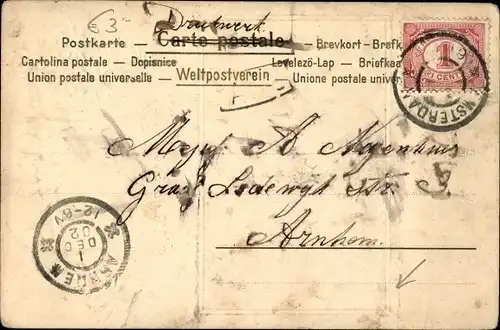 € 3-
Drukwerk
Postkarte — Carte postale — Brevkort - Brefk
Cartolina postale — Dopisnice Levelező-Lap — Briefkaa
Union postale universelle — Weltpostverein — Unione postale univer
1
CENT
AMSTERDA
Mejuf. A. Nyenhuis
Graaf Lodewijk Str.
Arnhem.
ARNHEM
1
DEC
02
12-6V